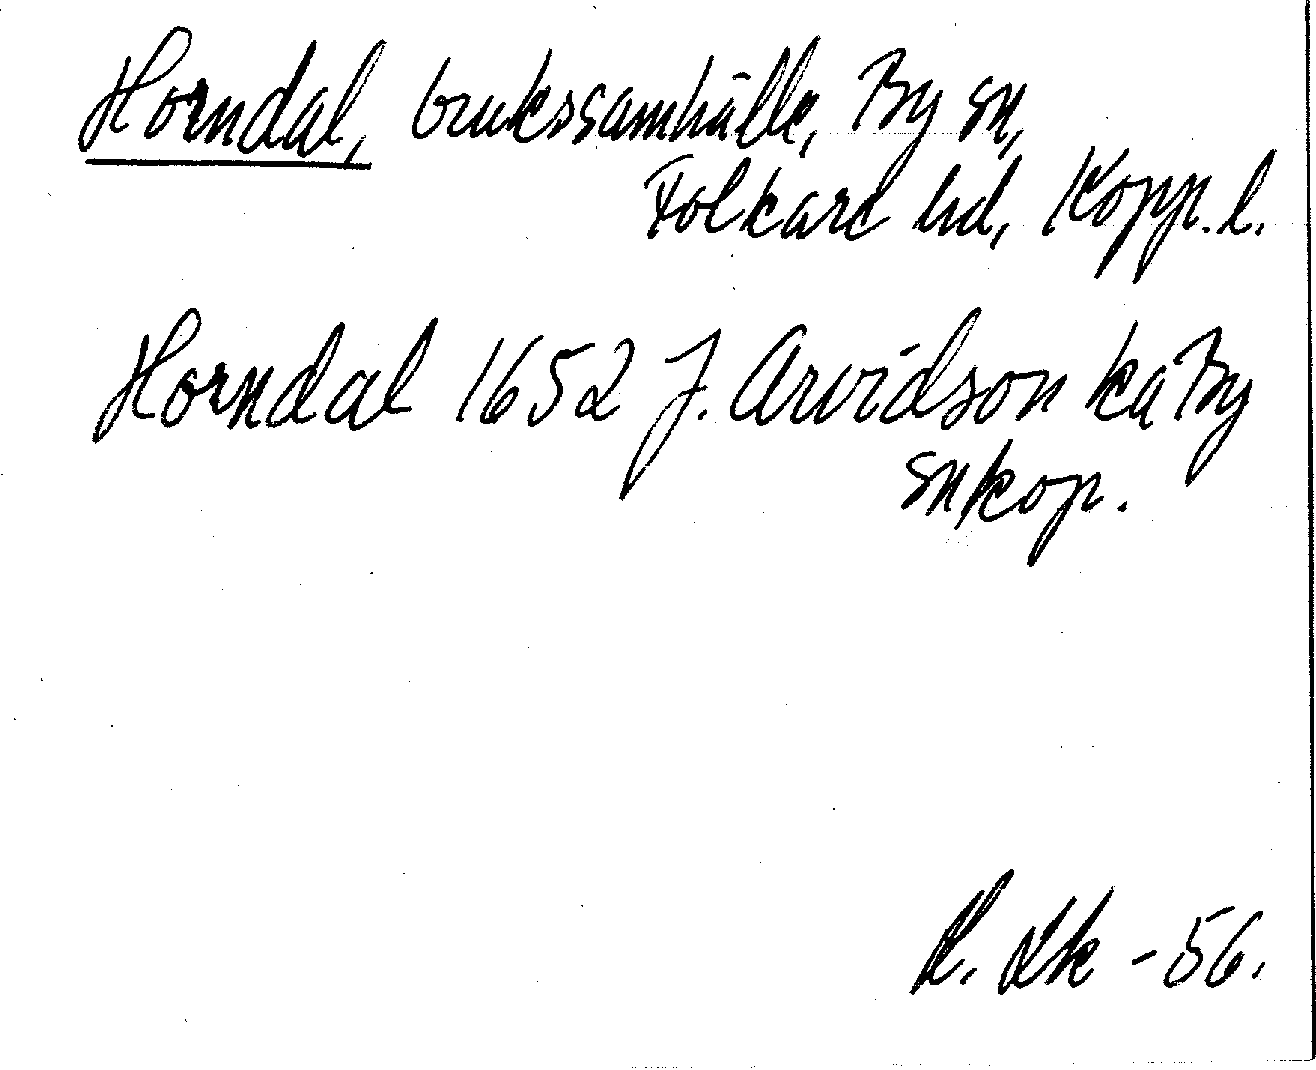 Horndal, brukssamhälle, By sn,
Folkare hd, Kopp. l.
Horndal 1652 J. Arvidson ka By
snkop.
-56.